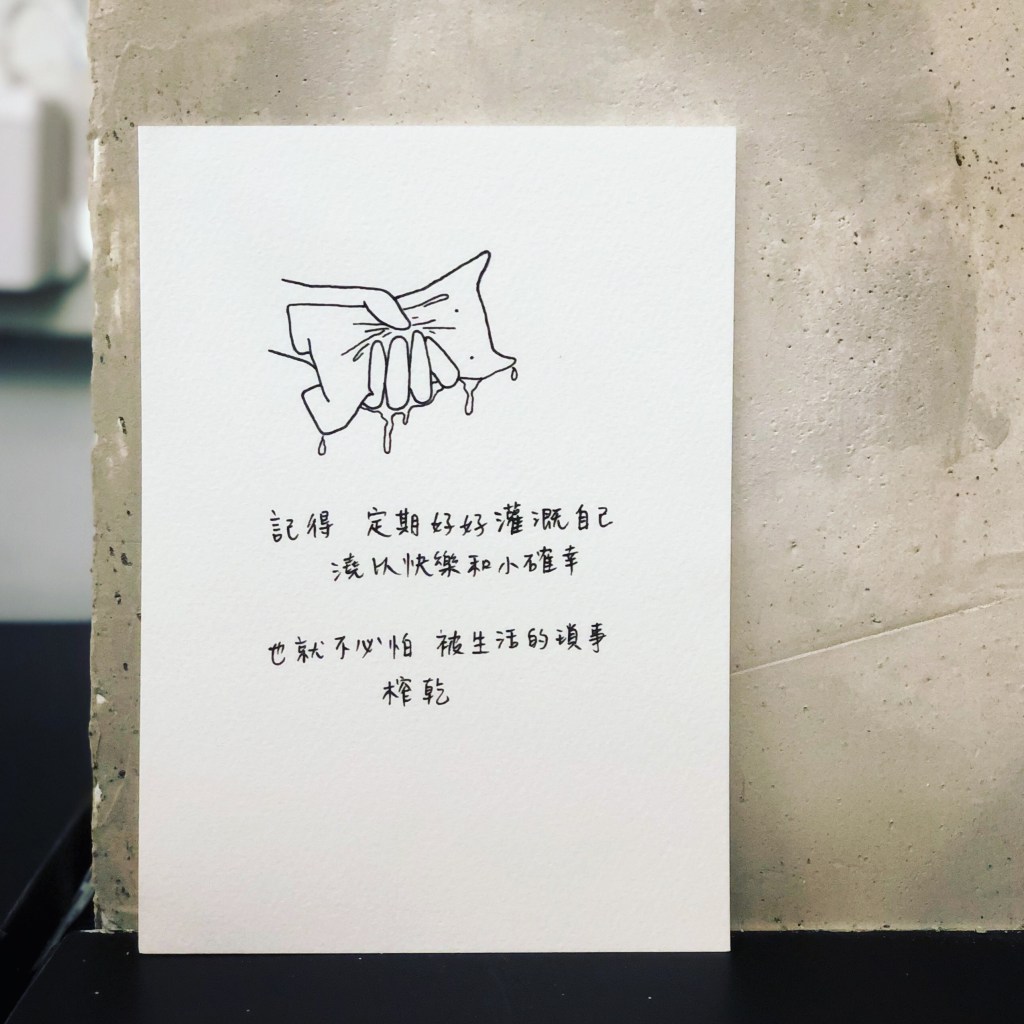 記得 定期好好灌溉自己
澆以快樂和小確幸
也就不必怕 被生活的瑣事
榨乾